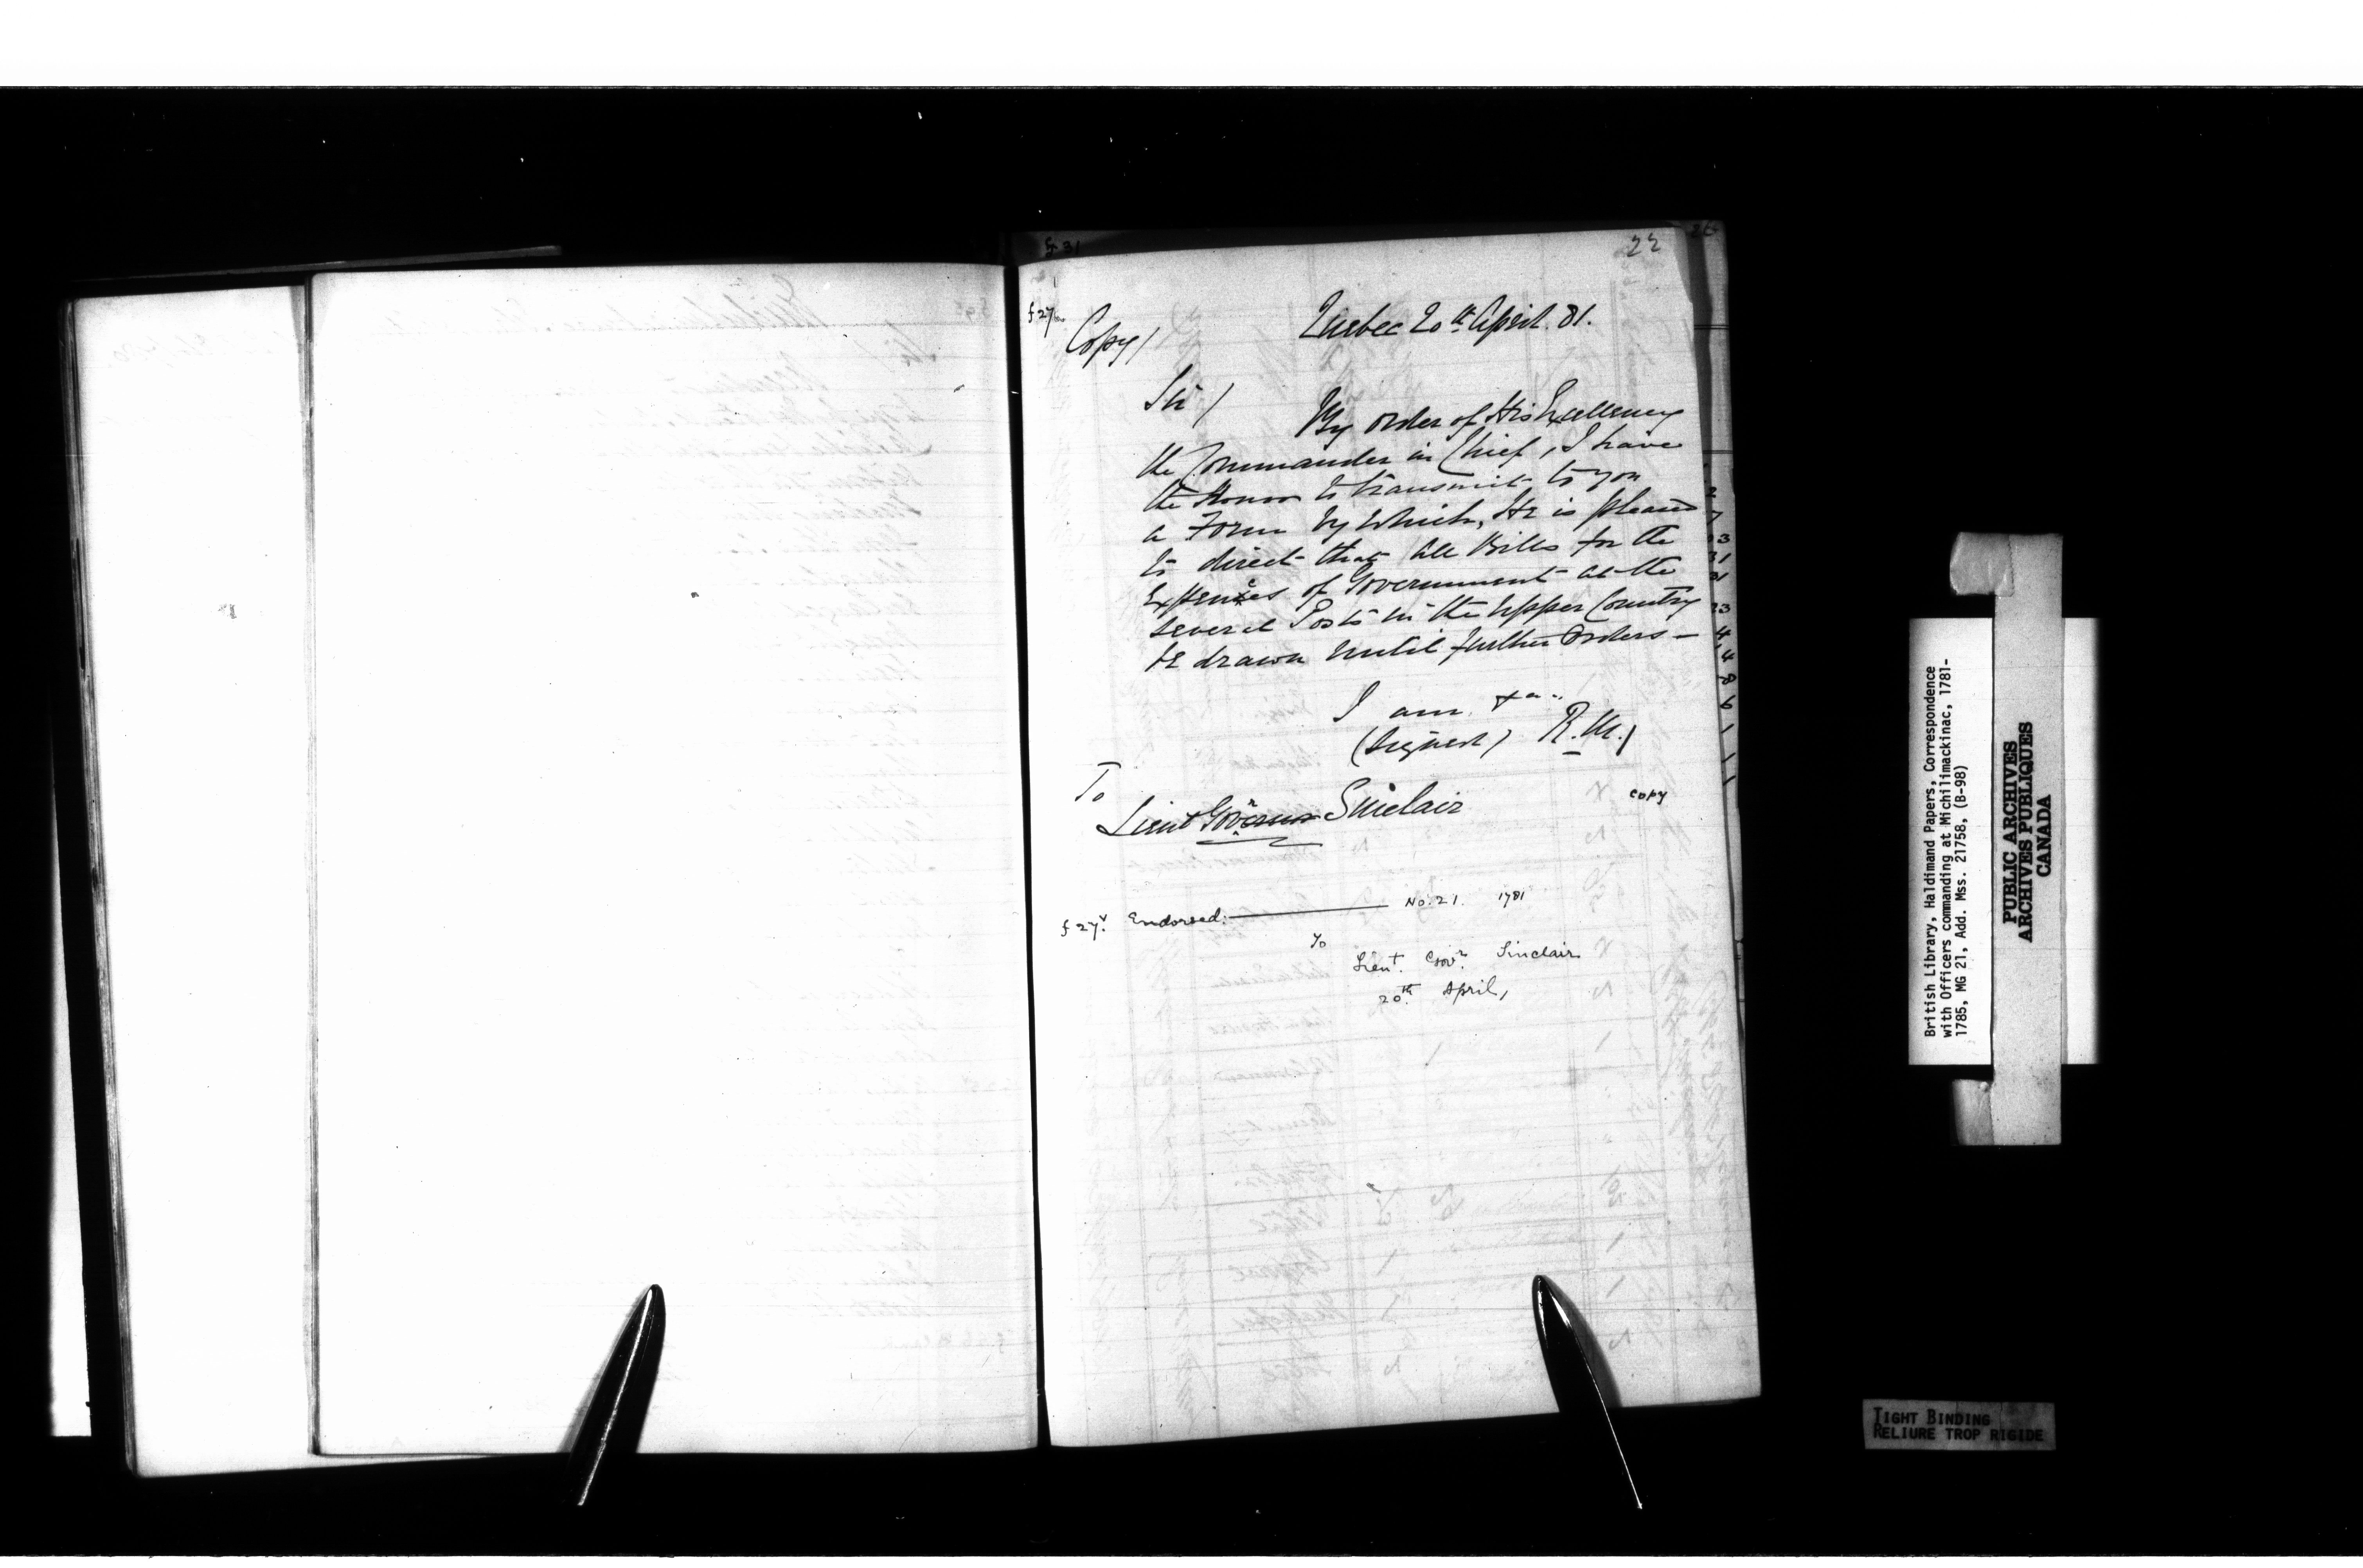 f 31
22
f 27
Copy/
Quebec 20th April. 81.
Sir/
By order of His Excellency
the Commander in Chief, I have
the Honor to transmit to you
a Form by Which, He is pleased
to direct that all Bills for the
Expences of Government at the
several Posts in the Upper Country
be drawn until further Orders —
I am &a..
(Signed) R. M./
To
Lieut Govr Sinclair
copy
f 27v. Endorsed:— No. 21. 1781
To
Lieut. Govr. Sinclair
20th April,
British Library, Haldimand Papers, Correspondence
with Officers commanding at Michilimackinac, 1781-
1785, MG 21, Add. Mss. 21758, (B-98)
PUBLIC ARCHIVES
ARCHIVES PUBLIQUES
CANADA
TIGHT BINDING
RELIURE TROP RIGIDE